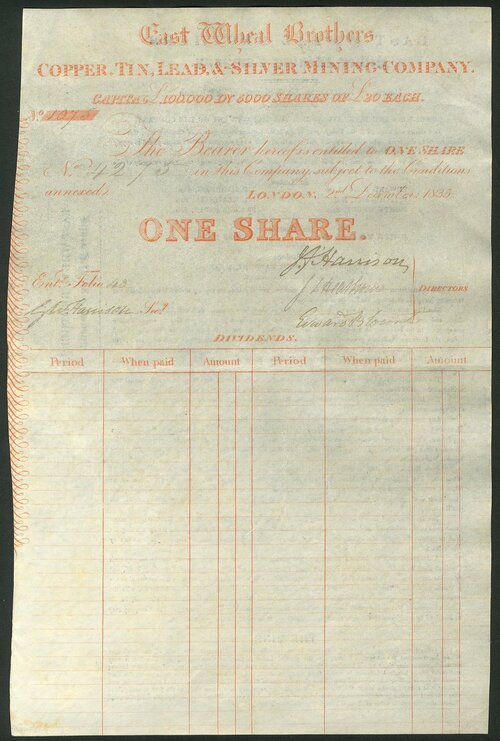 East Wheal Brothers
COPPER, TIN, LEAD, & SILVER MINING COMPANY.
CAPITAL £100000 IN 5000 SHARES OF £20 EACH.
No.
The Bearer hereof is entitled to ONE SHARE
No. 4273 in this Company, subject to the Conditions
annexed.
LONDON, 2nd Decemr. 1835
ONE SHARE.
J. Harrison
Entd. Folio 43
DIRECTORS
Harrison Secy.
Edward
DIVIDENDS.
Period When paid Amount Period When paid Amount